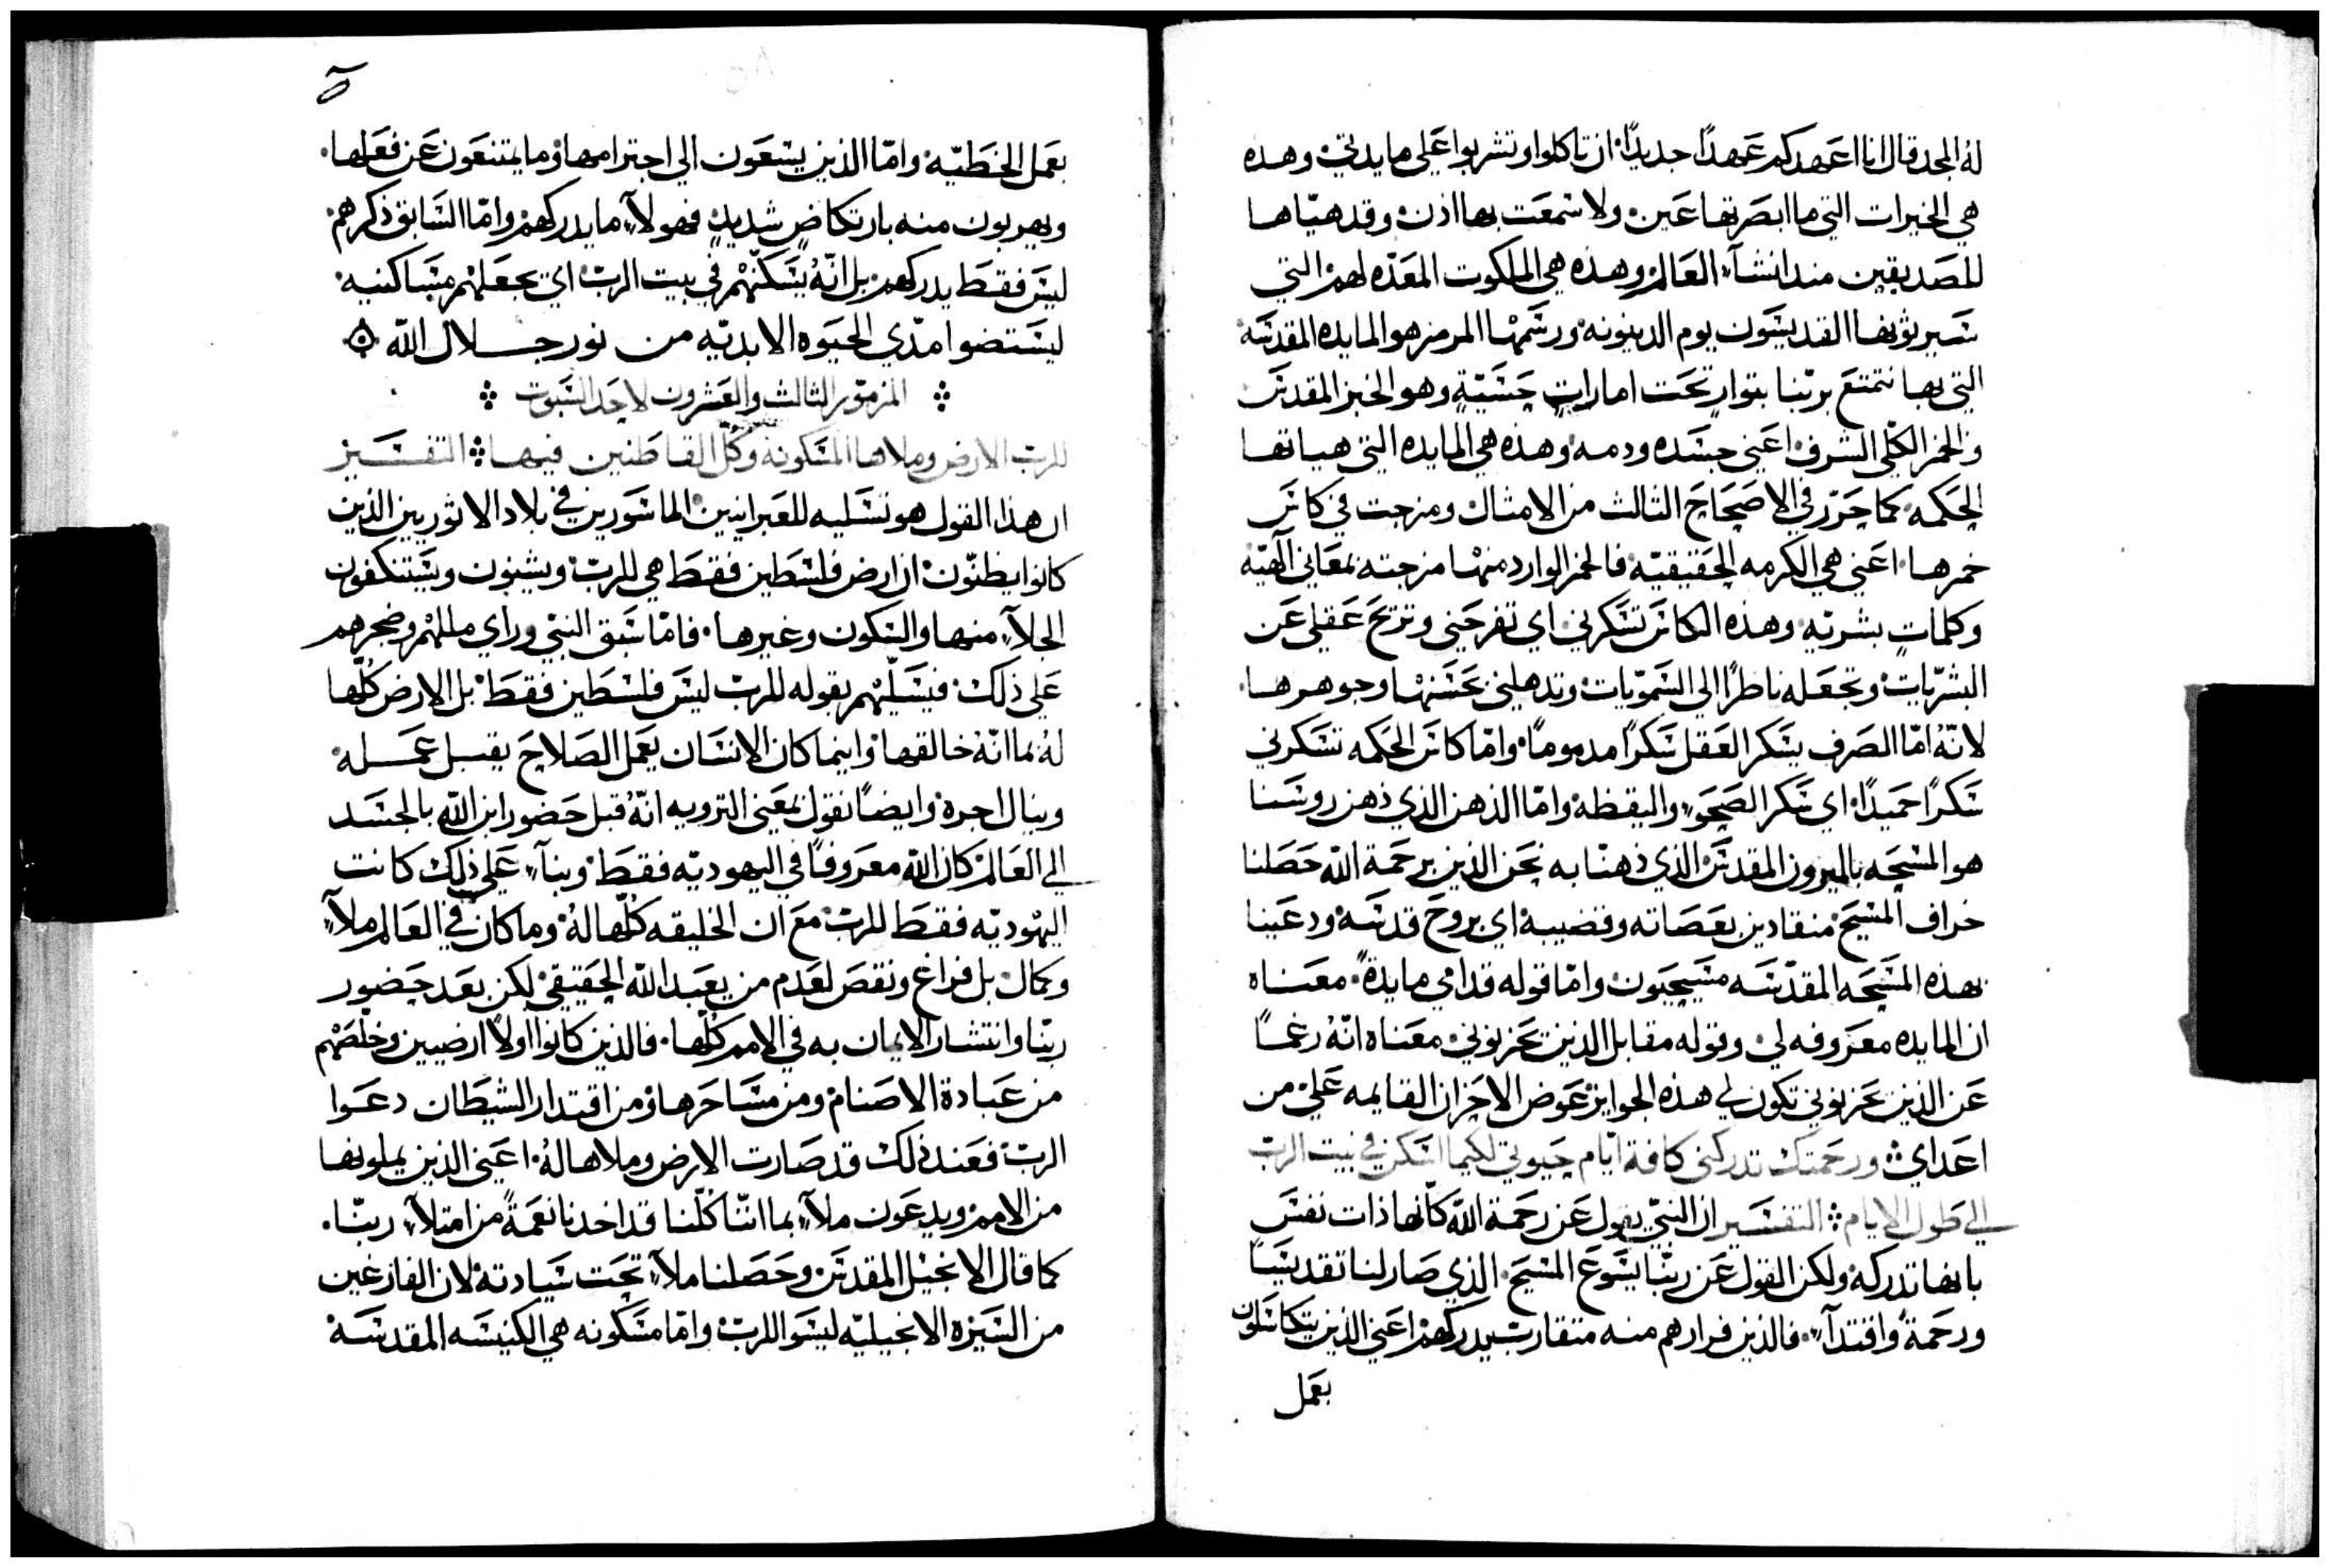 له المجد قال انا اعهدكم عهدًا جديدًا، ان تاكلوا وتشربوا على مايدتي، وهذه
هي الخيرات التي ما ابصرتها عين، ولا سمعت بها اذن، وقد هيّاها
للصديقين منذ انشآء العالم، وهذه هي الملكوت المعدّه لهم، التي
سيرثونها القديسون يوم الدينونه، ورسمها المرمز هو المايده المقدسة
التي بها نتمتع بربّنا بتوارٍ تحت اماراتٍ حسيّةٍ وهو الخبز المقدس
والخمر الكلّي الشرف، اعني جسده ودمه، وهذه هي المايده التي هياتها
الحكمه، كما حرّر في الاصحاح الثالث من الامثال، ومزجت في كاس
خمرها، اعني هي الكرمه الحقيقيّه، فالخمر الوارد منها مزجته بمعاني الٓهيّه
وكلماتٍ بشريّه، وهذه الكاس تسكرني اي تفرحني وتريح عقلي عن
البشريّات، وتجعله ناظرًا الى السمويّات، وتدهلني بحسنها وجوهرها،
لانّهُ امّا الصرف يسكر العقل سكرًا مدمومًا، وامّا كاس الحكمه تسكرني
سكرًا حميدًا، اي سكر الصحو، واليقظه، وامّا الذهن الذي ذهن روسنا
هو المسحه بالميرون المقدس، الذي ذهنّا به نحن الذين برحمة اللّه حصلنا
خراف المسيح، منقادين بعصاته وقضيبه، اي بروح قدسه، ودعينا
بهذه المسحه المقدّسه مسيحيون، وامّا قوله قدامي مايدةً، معناه
ان المايده معروفه لي، وقوله مقابل الذين يحزنوني، معناه انّهُ رغمًا
عن الذين يحزنوني تكون لي هذه الجوايز، عوض الاحزان القايمه عليّ من
اعداي: ورحمتك تدركني كافة ايّام حيوتي لكيما اسكن في بيت الربّ
الى طول الايام: التفسير ان النبيّ يقول عن رحمة اللّه كانّها ذات نفس
بانها تدركه، ولكن القول عن ربّنا يسوع المسيح، الذي صار لنا تقديسًا
ورحمةً وافتدآء، فالذين فرارهم منه متقارب سيدركهم، اعني الذين يتكاسلون
بعمل
بعمل الخطيّه، وامّا الذين يسعون الى اجترامها، وما يمتنعون عن فعلها،
ويهربون منه بارتكاضٍ شديدٍ، فهولآء ما يدركهم، وامّا السابق ذكرهم،
ليس فقط يدركهم، بل انّهُ يسكّنهم في بيت الربّ، اي يجعلهم مساكنيه،
ليستضوا مدّي الحيوه الابديّه من نور جلال اللّه
المزمور الثالث والعشرون لاحد السبوت
للربّ الارض وملاها المسكونه وكلّ القاطنين فيها: التفسير
ان هذا القول هو تسليه للعبرانيين الماسورين في بلاد الاثوريين الذين
كانوا يظنّون، ان ارض فلسطين فقط هي للربّ، ويشنون ويستنكفون
الجلآء منها، والسكون وغيرها، فامّا سبق النبيّ وراي مللهم وضجرهم
على ذلك، فيسلّيهم بقوله للربّ ليس فلسطين فقط، بل الارض كلّها
لهُ، بما انّهُ خالقها، واينما كان الانسان يعمل الصلاح يقبل عمله،
وينال اجره، وايضًا نقول بمعني الترويه انّهُ قبل حضور ابن اللّه بالجسد
الى العالم، كان اللّه معروفًا في اليهوديّه فقط، وبنآء على ذلك كانت
اليهوديّه فقط للربّ، مع ان الخليقه كلّها لهُ، وما كان في العالم ملآء
وكمال، بل فراغ ونقص لعدم من يعبد اللّه الحقيقي، لكن بعد حضور
ربّنا وانتشار الايمان به في الامم كلّها، فالذين كانوا اولًا ارضيين وخلّصهم
من عبادة الاصنام، ومن مساحرها، ومن اقتدار الشيطان دعوا
الربّ، فعند ذلك قد صارت الارض وملاها لهُ، اعني الذين يملونها
من الامم، ويدعون ملآء، بما انّنا كلّنا قد اخدنا نعمةً من امتلآء ربّنا،
كما قال الانجيل المقدس، وحصلنا ملآء تحت سيادته، لان الفارغين
من السيره الانجيليّه ليسوا للربّ، وامّا مسكونه هي الكنيسه المقدسه